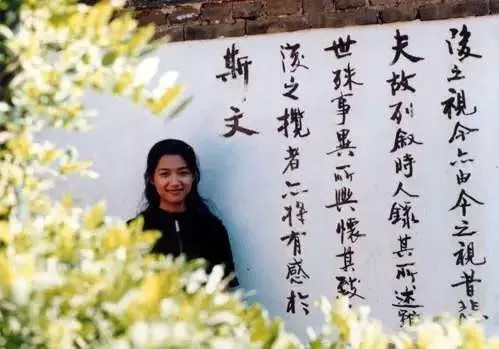 後之視今亦由今之視昔悲
夫故列敘時人錄其所述雖
世殊事異所興懷其致
後之攬者亦將有感於
斯文